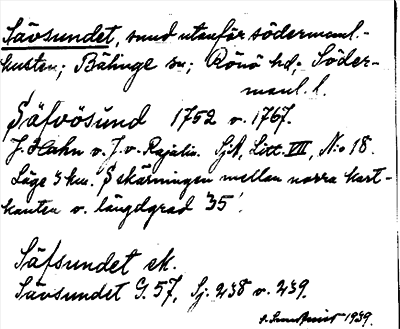 Sävsundet, sund utanför södermanl.-
kusten; Bälinge sn; Rönö hd; Söder-
manl. l.
Säfvösund 1752 v. 1767.
J. Hahn v. J. v. Rajalin. SjA, Litt. VII, N:o 18.
Läge 5 km. S skärningen mellan norra kart-
kanten v. längdgrad 35'.
Säfsundet ek.
Sävsundet G. 57, Sj: 238 v. 239.
1939.